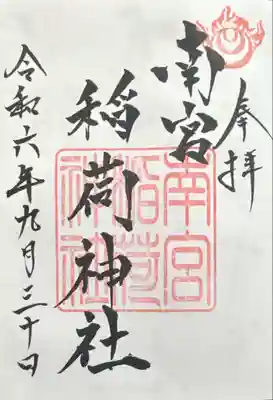 奉拝
南宮
稲荷神社
令和六年九月三十日
南宮
稲荷
神社